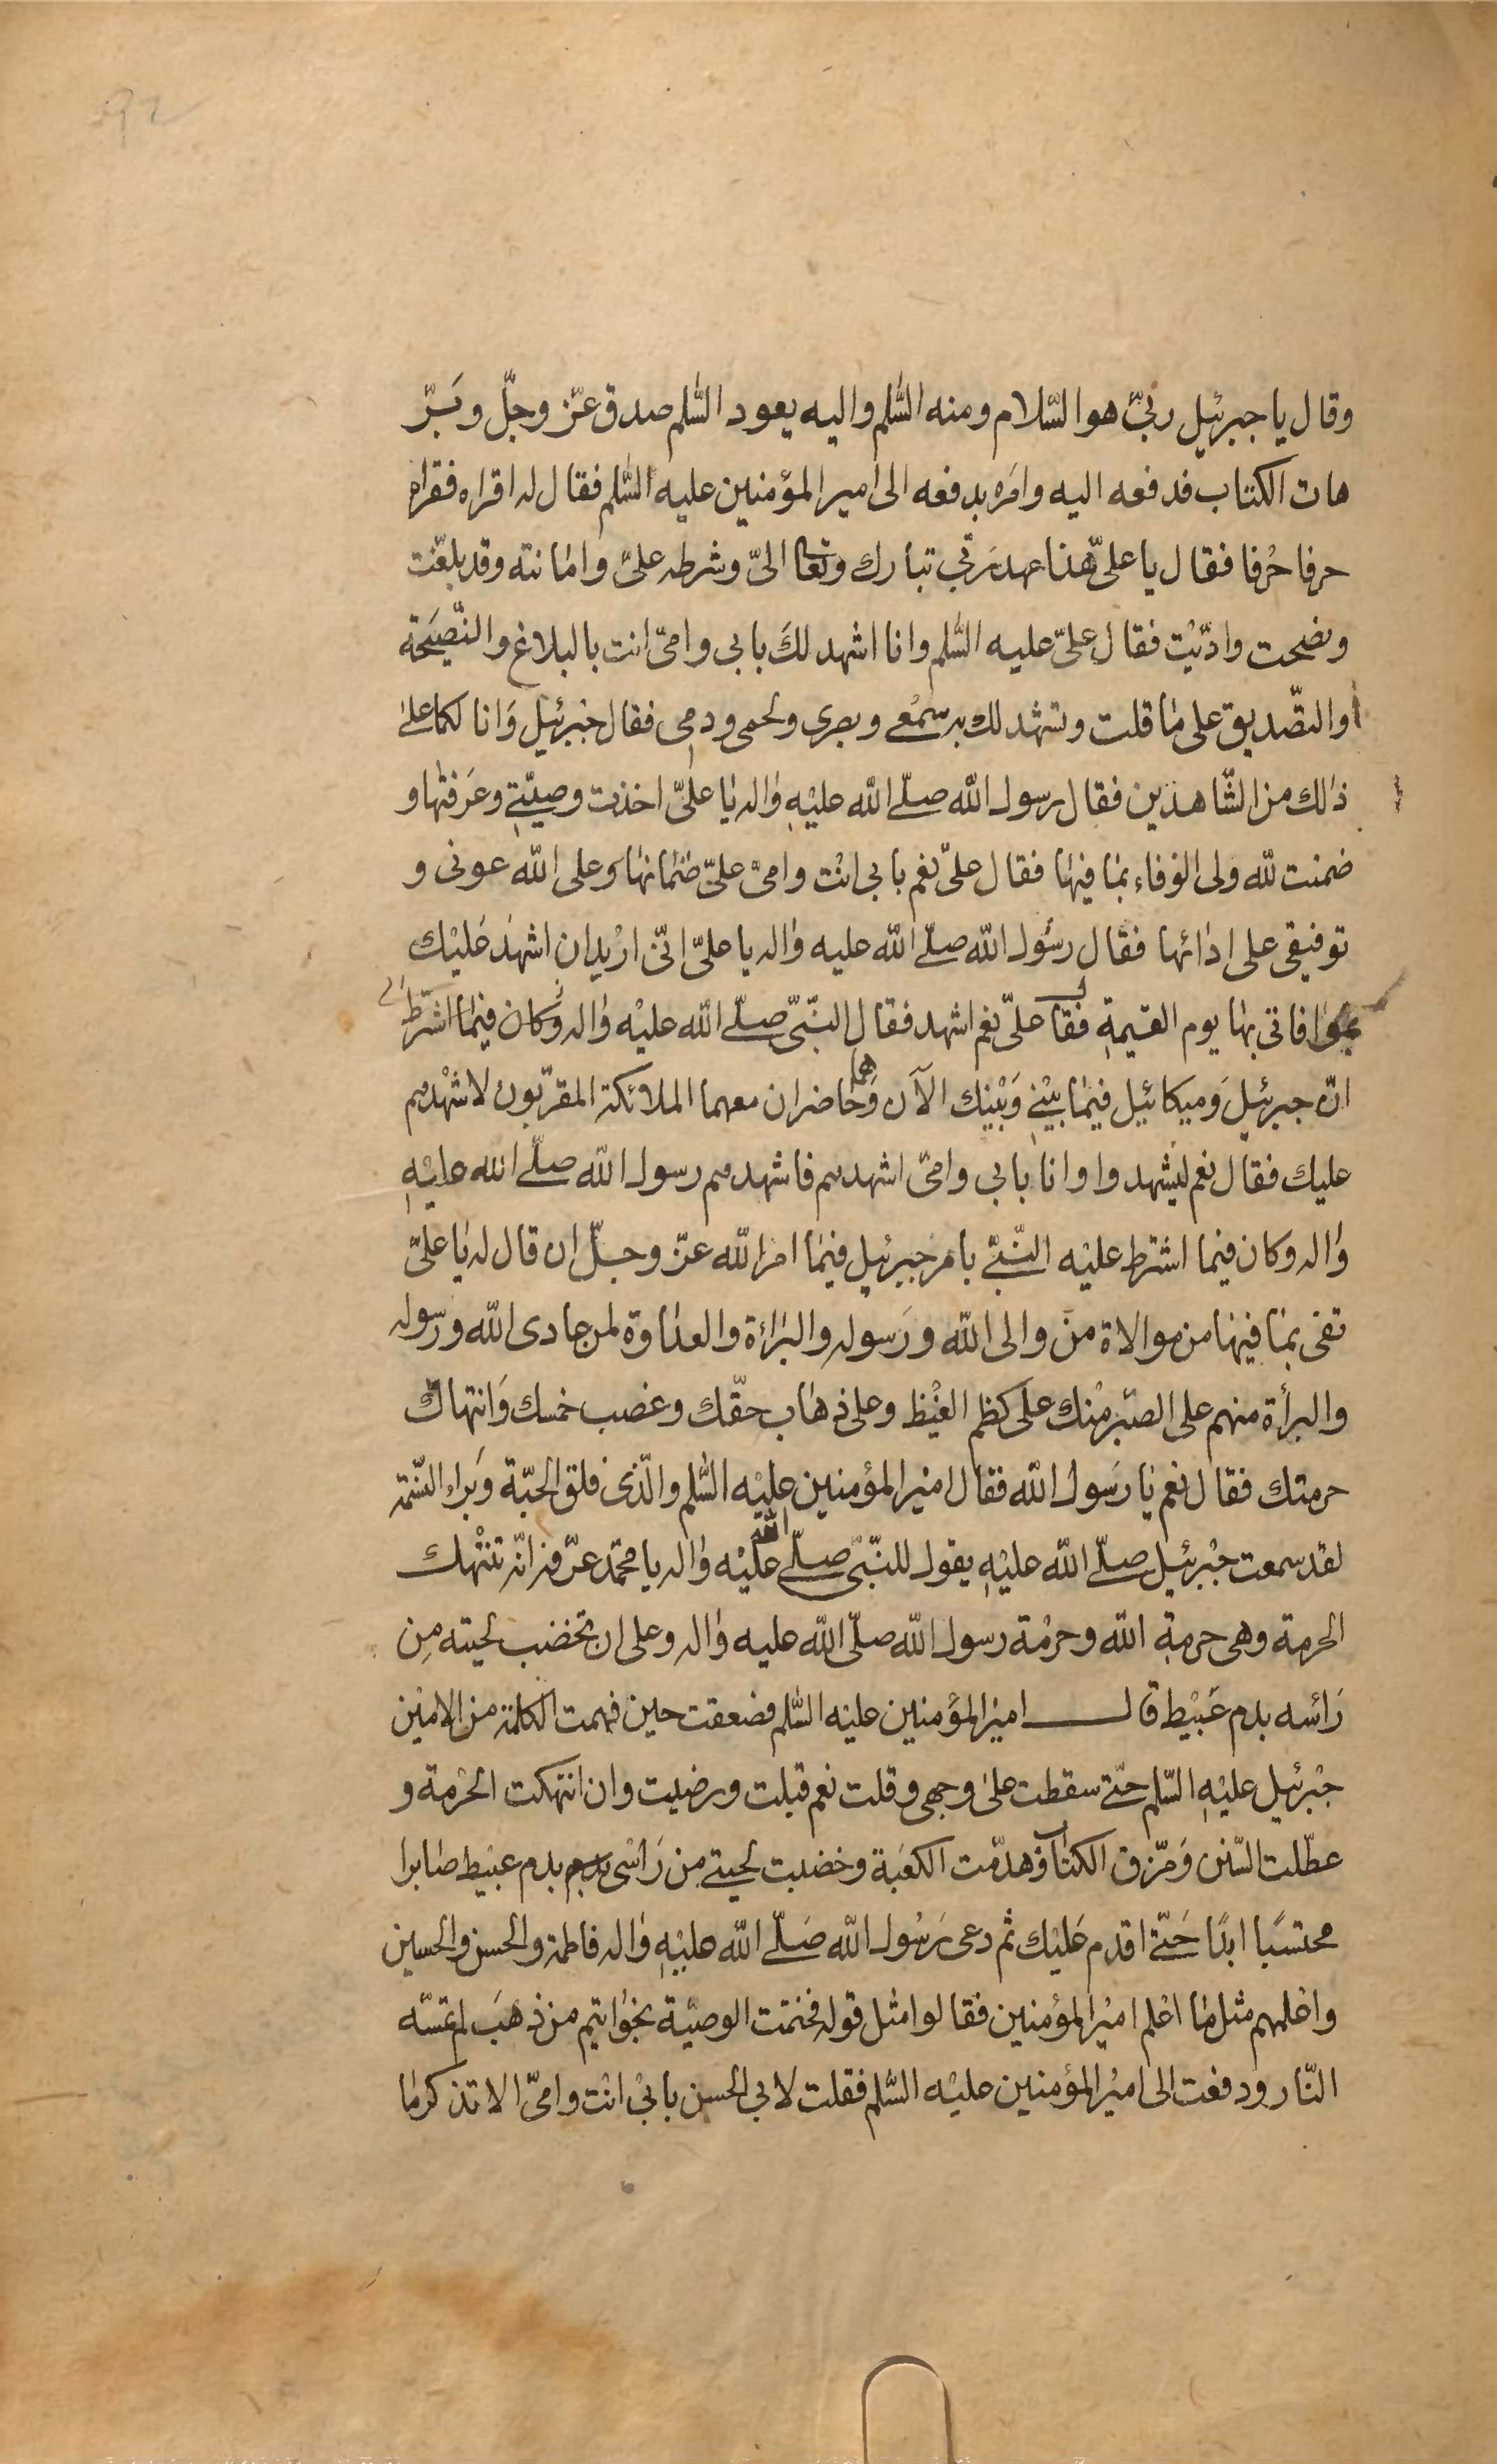 وقال يا جبرئيل ربّي هو السّلام ومنه السّلم واليه يعود السّلم صدق عزّ وجلّ وبَرّ
هات الكتاب فدفعه اليه وامَره بدفعه الى امير المؤمنين عليه السّلم فقال له اقراه فقراه
حرفا حُرفا فقال يا علىّ هذا عهد رَبّي تبارك وتعا الىّ وشرطه علىّ وامانته وقد بلغّت
ونصحت وادّيْت فقال علىّ عليه السّلم وانا اشهد لكَ بابى وامىّ انت بالبلاغ والنّصيَحة
والتصّديق على مٰا قلت وتشهد لك به سمْعى وبصرى ولحمى ودمى فقال جبرئيل وَانا لكما على
ذلك من الشّاهدين فقال رسول الله صلّى الله عليْهِ واله يٰا علىّ اخذت وصيّتى وعَرفتها و
ضمنت لله ولى الوفاء بمٰا فيهٰا فقال علىّ نعم بابى انْت وامىّ علىّ ضمٰانهٰا وعلى الله عونى و
توفيقى على ادٰائها فقال رسُول الله صلّى الله عليه واله يا علىّ انّى ارْيد ان اشهدَ عَليْك
بموافاتى بها يوم القيٰمةِ فقال علىّ نعم اشهد فقال النبّىّ صلّى الله عليْه واله وكان فيمٰا اشترط
انّ جبرئيلَ وَميكائيل فيمٰا بيْنى وَبْينك الآن وَهما حٰاضران معهما الملائكة المقرّبون لاشهْدهم
عليك فقال نعم ليشهدوا وانا بابى وامىّ اشهدهم فاشهدهم رسول الله صلّى الله عليْهِ
واله وكان فيما اشترط عليْه النّبىّ بامر جبرئيل فيمٰا امر الله عزّ وجلّ ان قال له يٰا علىّ
تفى بمٰا فيهٰا من موالاة منَ والى الله ورَسوله والبرٰاءة والعدٰاوة لمن عادى الله ورسوله
والبرأة منهم على الصّبر مْنك علَى كظم الغيْظ وعلى ذهٰاب حقّك وغصب خمسك وَانتهاك
حرمتك فقال نعم يٰا رَسول الله فقال اميْر المؤمنين عليْه السّلم والّذى فلق الحبّة وَبراء النّسمة
لقد سمعت جبْرئيل صلّى الله عليْهِ يقول للنّبّى صلّى الله عليْه واله يا محمّد عرّفه انّه تنْتهك
الحرمة وهى حرمة الله وحرْمة رسول الله صلّى الله عليه واله وعلى ان تخضب لحيته مِن
رَاسْه بدم عَبيْط قال اميْر المؤمنين عليْه السّلم فصعقت حين فهمت الكلمة من الامْين
جبْرئيل عليْهِ السّلم حتّى سقطت على وجهى وقلت نعم قبلت ورضيت وان انتهكت الحْرمة و
عطّلت السّنن وَمزّق الكتاب وهدّمت الكعَبة وخضبت لحيتى من رَاسْى بدم عبيْط صٰابرا
محتسًبا ابدًا حَتّى اقدم عَليْك ثم دعى رَسُول الله صَلّى الله عليْهِ واله فاطمة والحسن والحسين
واعْلمهم مثل مٰا اعْلم اميْر المؤمنين فقالوا مثْل قوله فختمت الوصيّة بخوٰاتيم من ذهَب لم تمسّه
النّار ودفعت الى اميْر المؤمنين عليْه السّلم فقلت لابى الحسن بابىْ انْت وامىّ الا تذكر مٰا